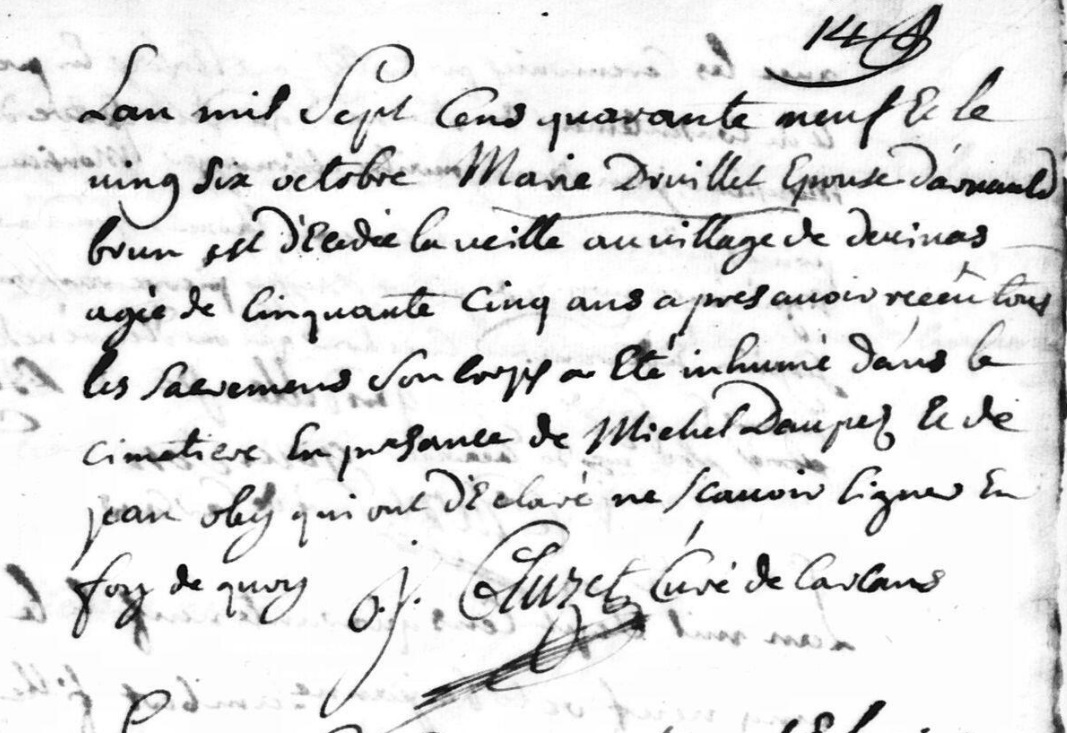 Lan mil Sept Cens quarante neuf Et le
ving Six octobre Marie Druillet Epouse d'arnauld
brun est d'Eedée la veille au village de devinas
agée de Cinquante Cinq ans apres avoir receu tous
les Sacremens Son corps a Eté inhumé dans le
cimetiere En presance de Michel Et de
jean qui ont d'Eclaré ne scavoir Signer En
foy de quoy J. Cluzet Curé de Carcans